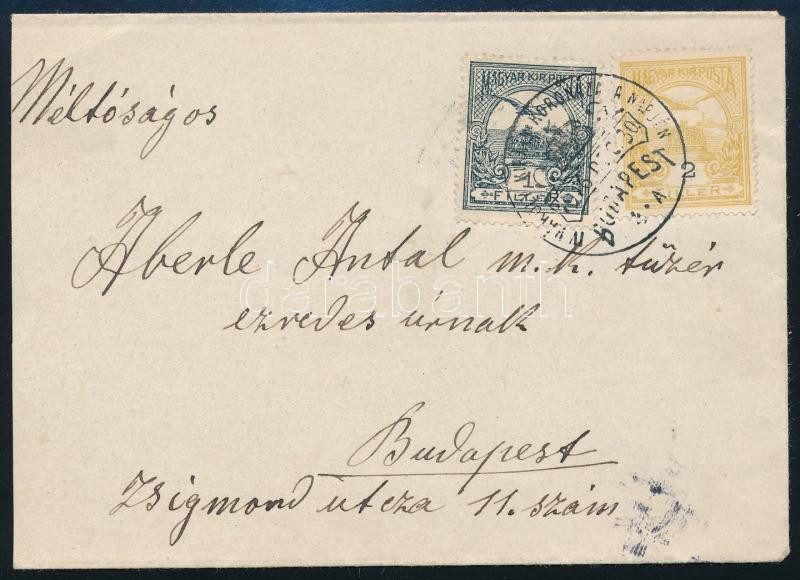 MAGYAR KIR. POSTA
1
FILLÉR
MAGYAR KIR. POSTA
2
FILLÉR
KORONÁZÁS NAPJÁN
BUDAPEST
Méltóságos
Aberle Antal m. k. tüzér
ezredes úrnak
darabanth
Budapest
Zsigmond utcza 11. szám